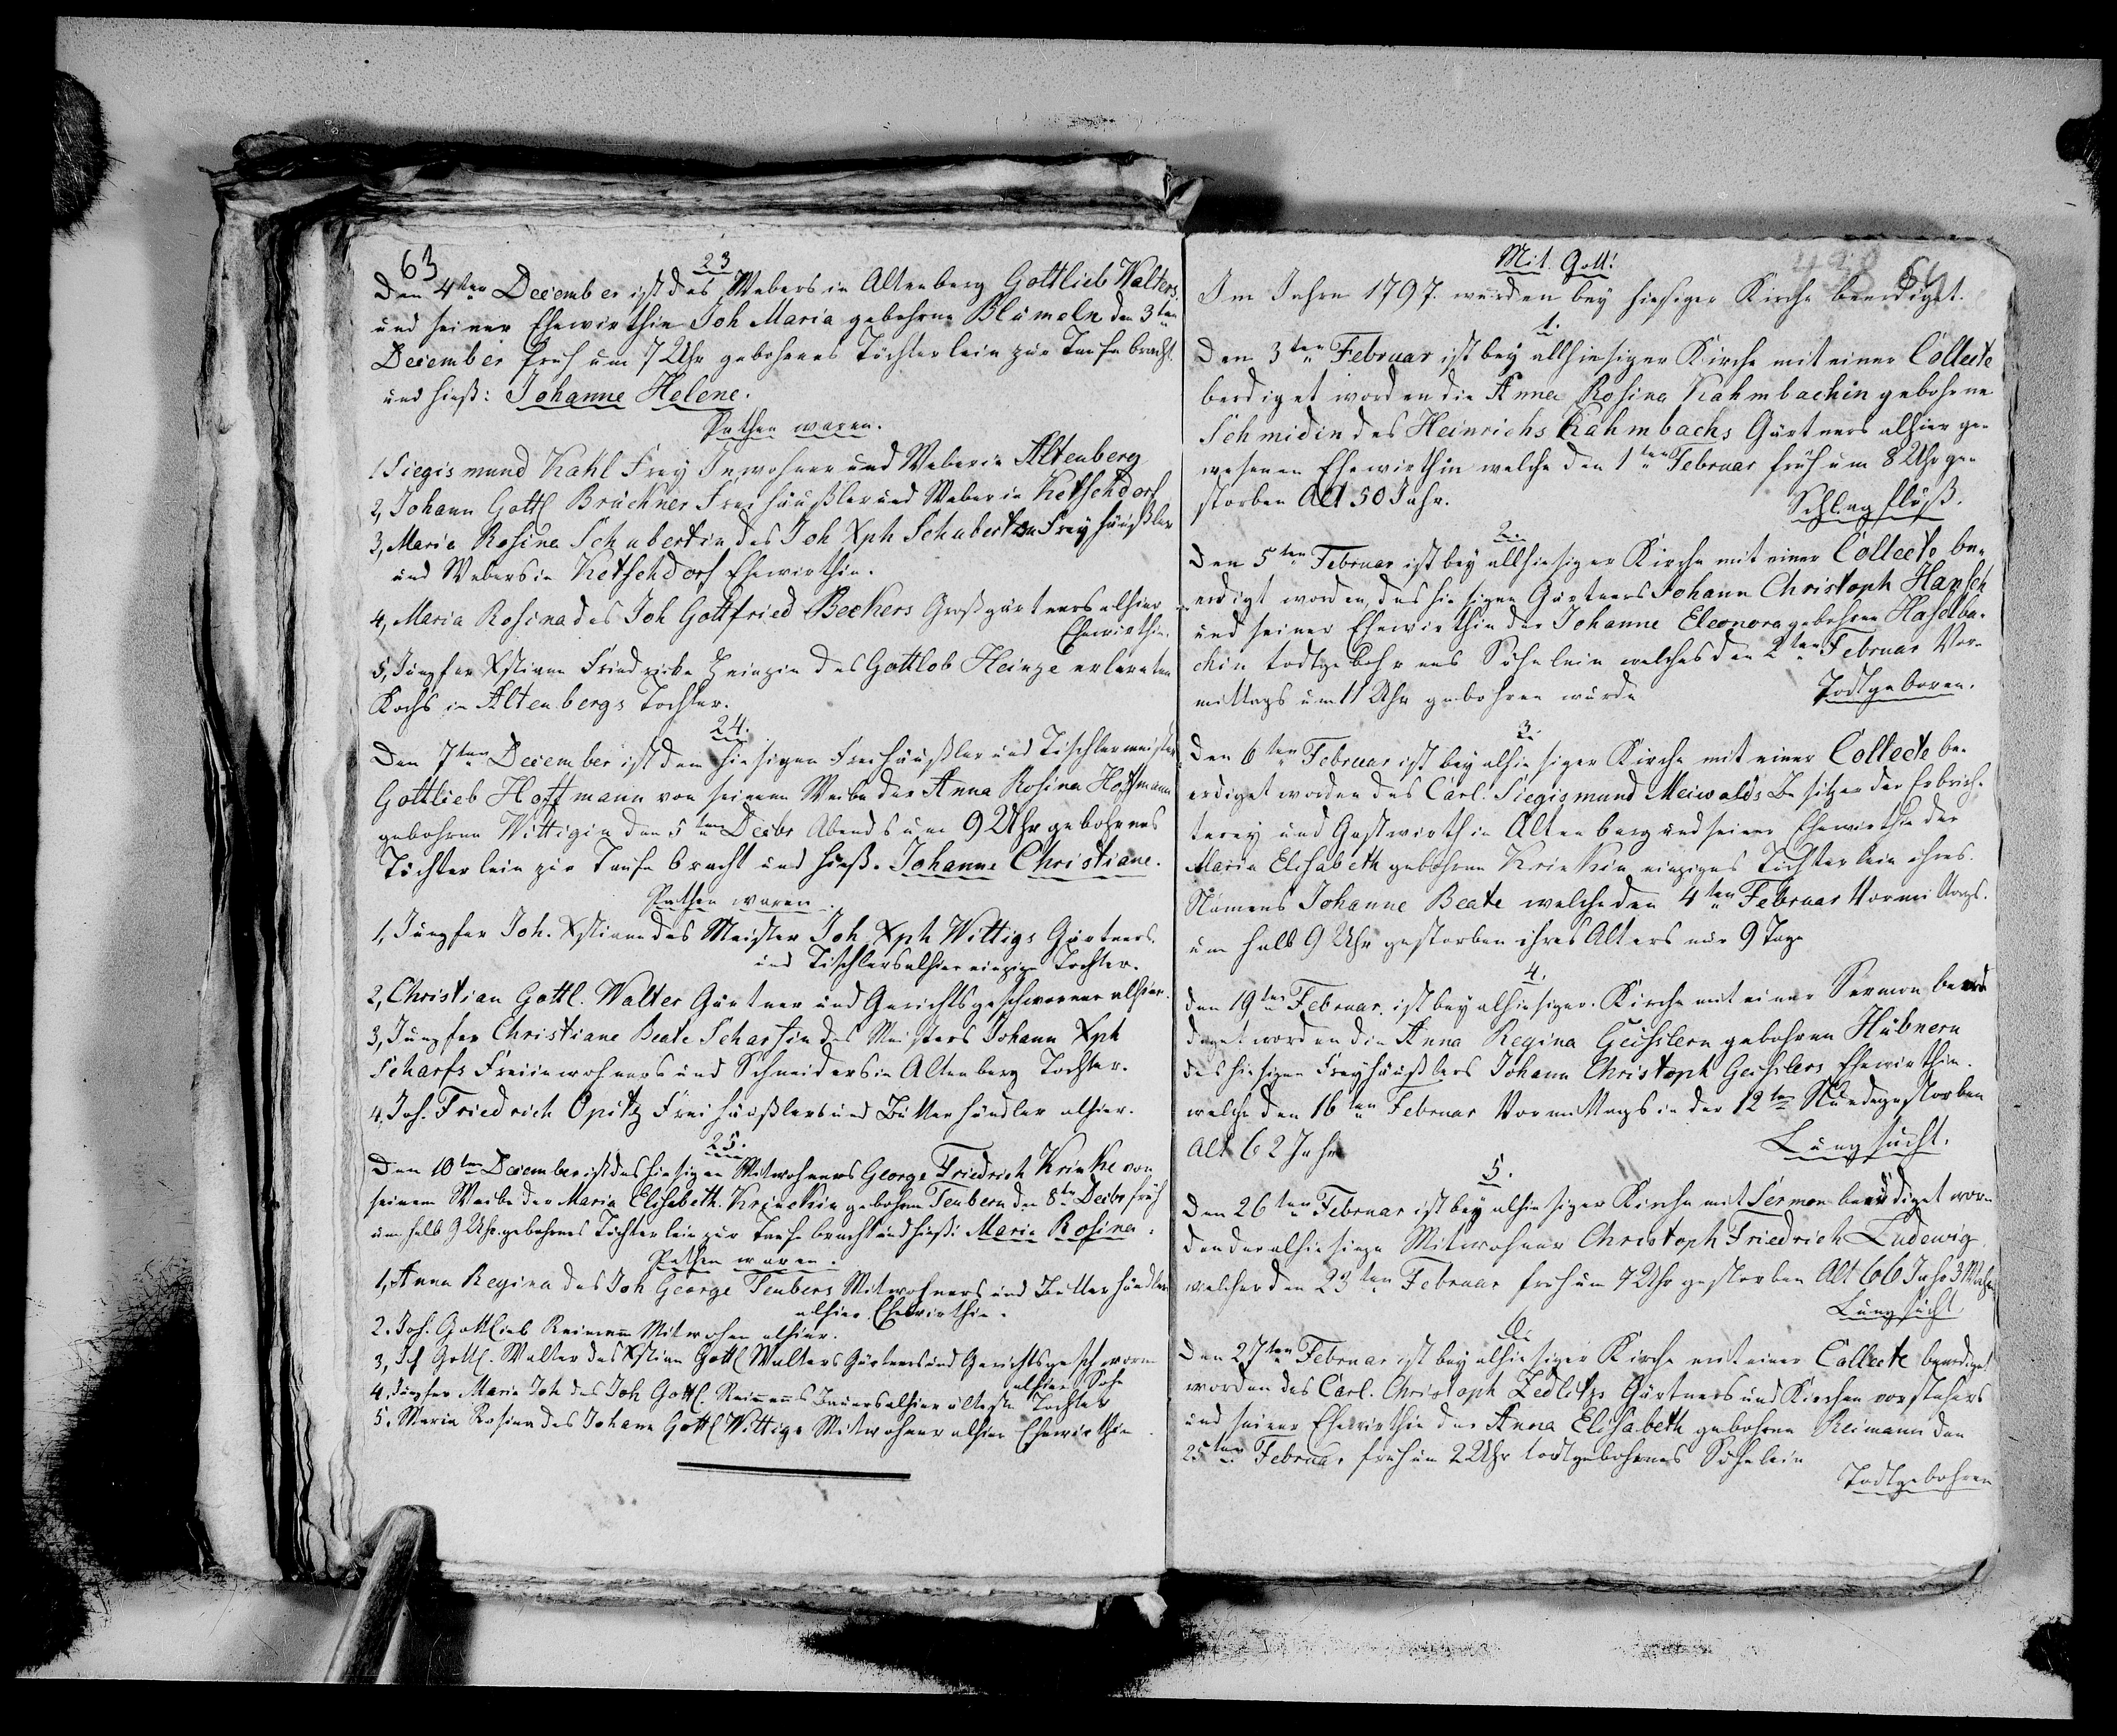 63
23
Den 4ten December ist des Webers in Altenberg Gottlieb Walters
und seiner Ehewirthin Joh Maria gebohrne Blümeln den 3ten
December früh um 7 Uhr gebohrnes Töchterlein zur Taufe bracht
und hieß: Johanne Helene.
Pathen waren.
1. Siegismund Kahl Frey Inwohner und Weber in Altenberg
2, Johann Gottl Brückner Freihäußler und Weber in Ketschdorf
3, Maria Rosina Schubertin des Joh Xph Schubert Freyhäußler
und Webers in Ketschdorf Ehewirthin.
4, Maria Rosina des Joh Gottfried Beckers Großgärtners alhier
Ehewirthin.
5, Jungfer Xstiane Friedricke Heinzin des Gottlob Heinze erlernten
Kochs in Altenbergs Tochter.
24.
Den 7ten December ist dem hiesigen Freihäußler und Tischlermeister
Gottlieb Hoffmann von seinem Weibe der Anna Rosina Hoffmann
gebohrne Wittigin den 5ten Decbr Abends um 9 Uhr gebohrnes
Töchterlein zur Taufe bracht und hieß. Johanne Christiane.
Pathen waren.
1, Jungfer Joh. Xstiane des Meister Joh. Xph Wittigs Gärtners
und Tischlers alhier einzige Tochter.
2, Christian Gottl. Walter Gärtner und Gerichtsgeschworner alhier.
3, Jungfer Christiane Beate Scharfin des Meisters Johann Xph
Scharfs Freiinwohners und Schneiders in Altenberg Tochter.
4, Joh. Friedrich Opitz Freihäußlers und Butterhändler alhier.
25.
Den 10ten December ist des hiesigen Mitwohners George Friedrich Krinke von
seinem Weibe der Maria Elisabeth Krinckin gebohrne Teubern den 8ten Decbr früh
um halb 9 Uhr gebohrnes Töchterlein zur Taufe bracht und hieß: Maria Rosina.
Pathen waren.
1, Anna Regina des Joh George Teubers Mitwohners und Butterhändler
alhier Ehewirthin.
2. Joh. Gottlieb Reimann Mitwohner alhier.
3, Joh Gottl. Walter des Xstian Gottl Walters Gärtners und Gerichtsgeschworn
alhier Sohn
4. Jungfer Maria Joh des Joh Gottl. Reimanns Bauers alhier älteste Tochter
5. Maria Rosina des Johann Gottl Wittigs Mitwohner alhier Ehewirthin
Mit Gott!
64
Im Jahre 1797. wurden bey hiesiger Kirche beerdiget.
1.
Den 3ten Februar ist bey allhiesiger Kirche mit einer Collecte
berdiget worden die Anna Rosina Kahmbachin gebohrne
Schmidin des Heinrichs Kahmbachs Gärtners alhier ge-
wesenen Ehewirthin welche den 1ten Februar früh um 8 Uhr ge-
storben Alt 50 Jahr.
Schlagfluß.
2.
Den 5ten Februar ist bey allhiesiger Kirche mit einer Collecte be-
erdigt worden, des hiesigen Gärtners Johann Christoph Hapsch
und seiner Ehewirthin der Johanne Eleonora gebohrne Haselba-
chin todtgebohrnes Söhnlein welches den 2ten Februar Vor-
mittags um 11 Uhr gebohren wurde
Todtgeboren.
3.
Den 6ten Februar ist bey alhiesiger Kirche mit einer Collecte be-
erdiget worden des Carl. Siegismund Meiwalds Besitzer der Erbrich-
terey und Gastwirth in Altenberg und seiner Ehewirthin der
Maria Elisabeth gebohrne Krinkin einziges Töchterlein ihres
Namens Johanne Beate welche den 4ten Februar Vormittags
um halb 9 Uhr gestorben ihres Alters nur 9 Tage
4.
Den 19ten Februar ist bey alhiesiger Kirche mit einer Sermon beerd
diget worden die Anna Regina Geißlern gebohrne Hübnern
des hiesigen Freyhäußlers Johann Christoph Geißlers Ehewirthin.
welche den 16ten Februar Vormittags in der 12ten Stunde gestorben
Alt 62 Jahr
Lungsucht.
5.
Den 26ten Februar ist bey alhiesiger Kirche mit Sermon beerdiget wor-
den der alhiesige Mitwohner Christoph Friedrich Ludewig
welcher den 23ten Februar früh um 7 Uhr gestorben Alt 66 Jahr 3
Lungsucht
6.
Den 27ten Februar ist bey alhiesiger Kirche mit einer Collecte beerdiget
worden des Carl. Christoph Zedlitzs Gärtners und Kirchenvorstehers
und seiner Ehewirthin der Anna Elisabeth gebohrne Reimann den
25ten Februar früh um 2 Uhr todtgebohrnes Söhnlein
Todtgebohren